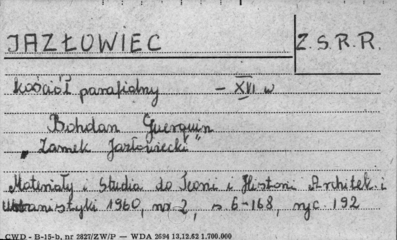 JAZŁOWIEC Z.S.R.R.
Kościół parafialny - XVI w
Bohdan Guerquin
"Zamek Jazłowiecki"
Materiały i Studia do Teorii i Historii Architek. i
Urbanistyki 1960, nr 2, s 6-168, ryc. 192
CWD - B-15-b, nr 2827/ZW/P — WDA 2694 13.12.62 1.700.000